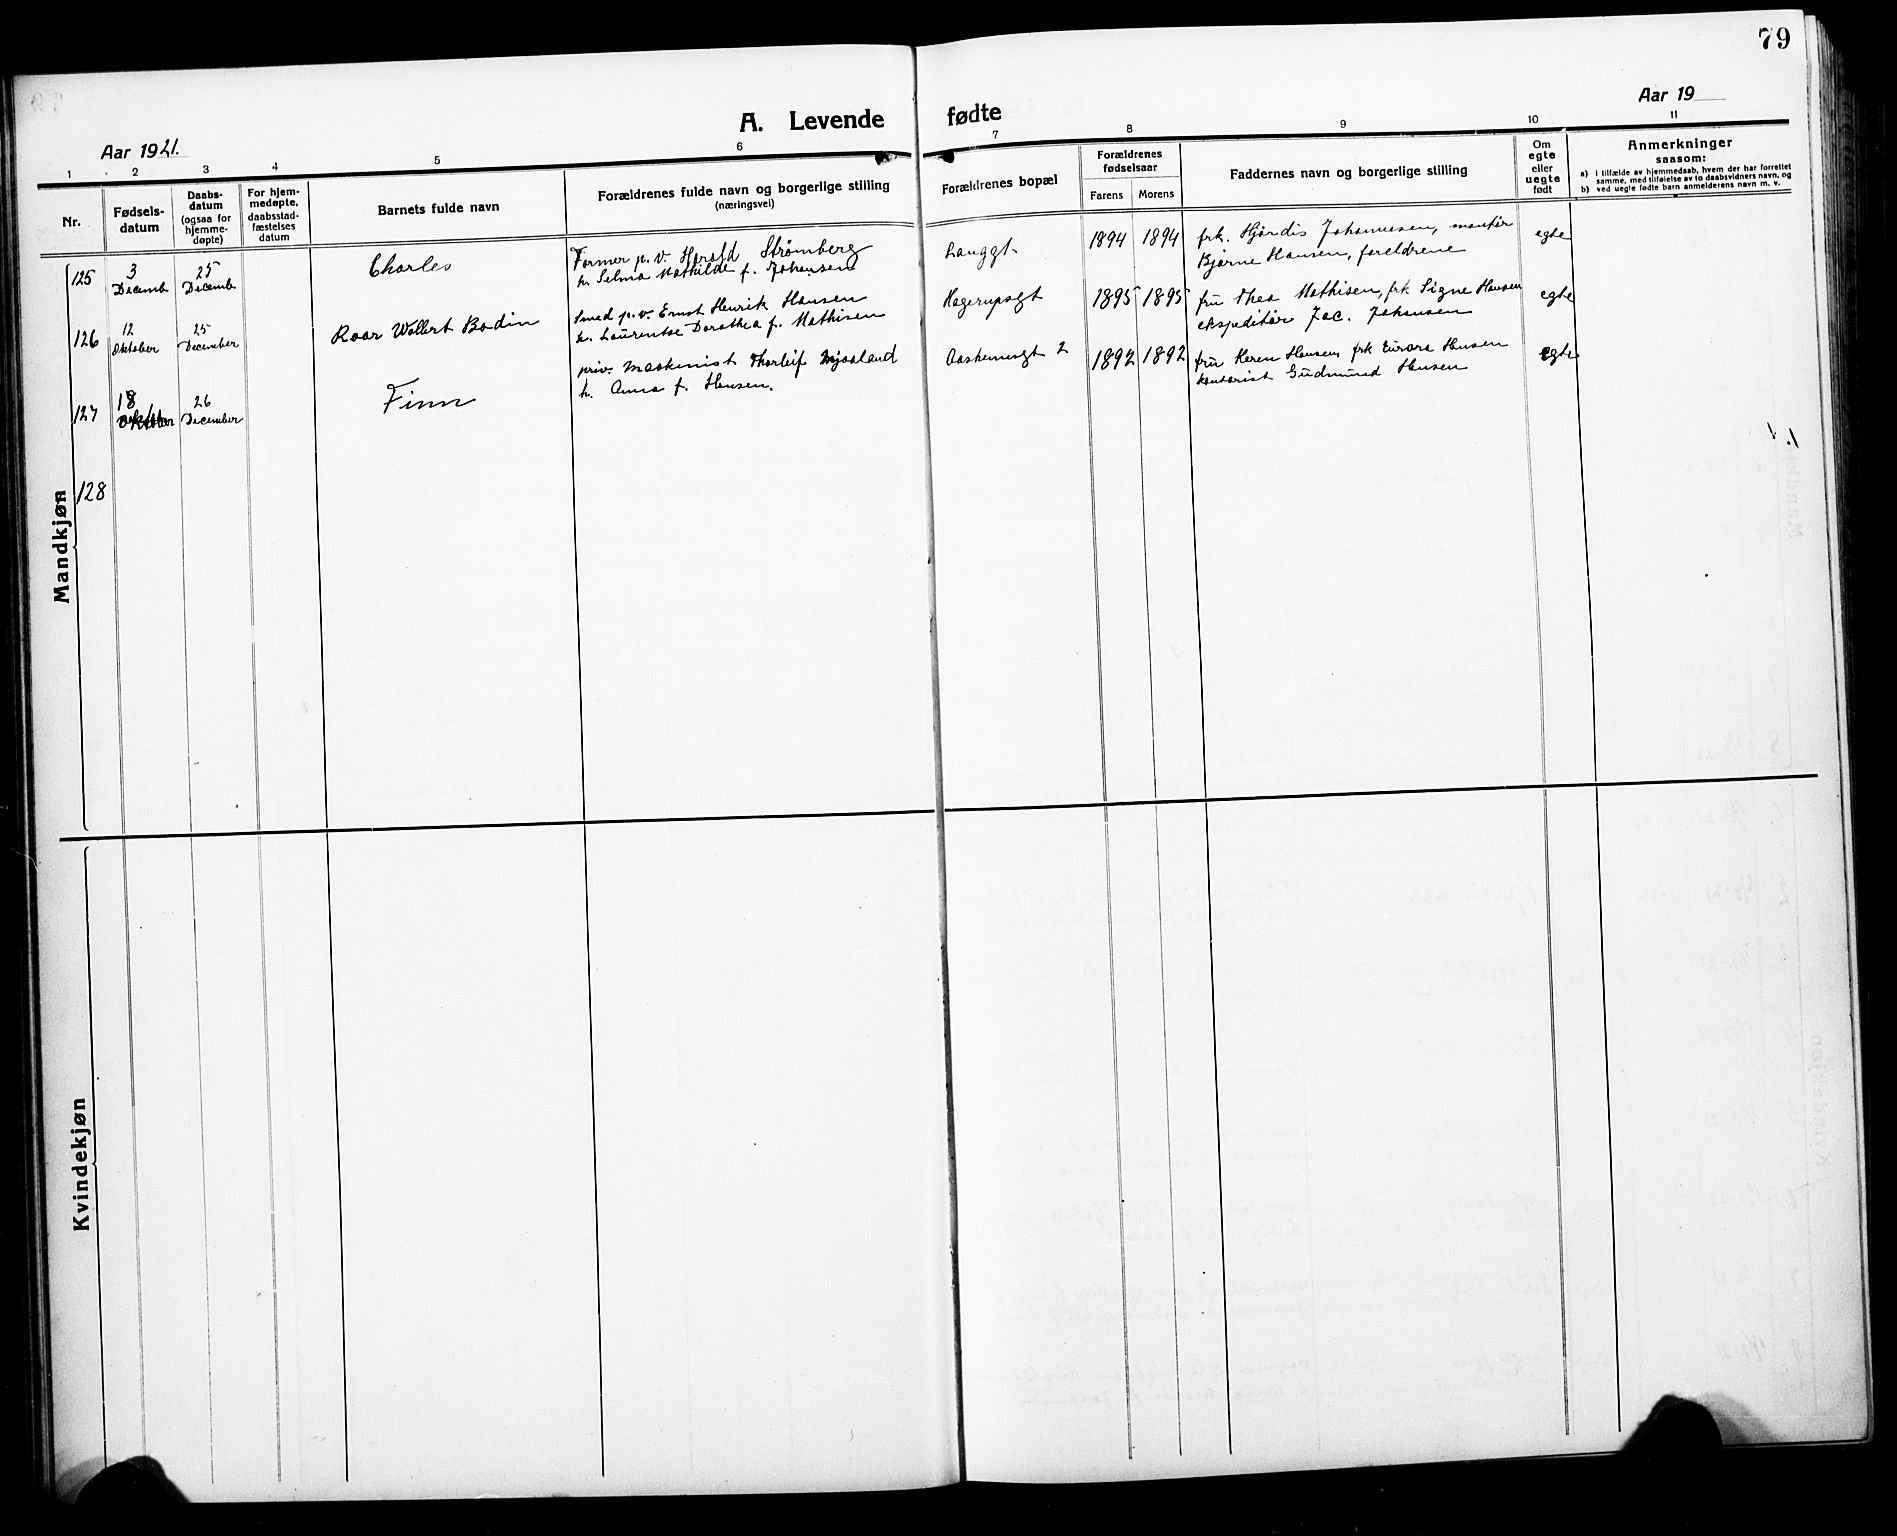 79
Aar 1921.
A. Levende fødte
Aar 19
1 2 3 4 5 6 7 8 9 10 11
Nr.
Fødsels-
datum
Daabs-
datum
(ogsaa for
hjemme-
døpte)
For hjem-
medøpte,
daabsstad-
fæstelses
datum
Barnets fulde navn
Forældrenes fulde navn og borgerlige stilling
(næringsvei)
Forældrenes bopæl
Forældrenes
fødselsaar
Farens Morens
Faddernes navn og borgerlige stilling
Om
egte
eller
uegte
født
Anmerkninger
saasom:
a) i tilfælde av hjemmedaab, hvem der har forrettet
samme, med tilføielse av to daabsvidners navn, og
b) ved uegte fødte barn anmelderens navn m. v.
Mandkjøn
125
3
Decemb
25
Decemb
Charles
Former p. v. Harald Strømberg
h. Selma Mathilde f. Johansen
Langgt.
1894 1894
frk. Hjørdis Johannesen, montør
Bjarne Hansen, foreldrene
egte
126
12
Oktober
25
December
Roar Wollert Bodin
Smed p. v. Ernst Henrik Hansen
h. Laurentse Dorothea f. Mathisen
Hagerupsgt
1895 1895
fru Thea Mathisen, frk Signe Hansen
ekspeditør Jac. Johansen
egte
127
18
Oktober
26
December
Finn
priv. maskinist Thorleif Mjaaland
h. Anna f. Hansen.
2
1892 1892
fru Karen Hansen, frk Hansen
kontorist Gudmund Hansen
egte
128
Kvindekjøn